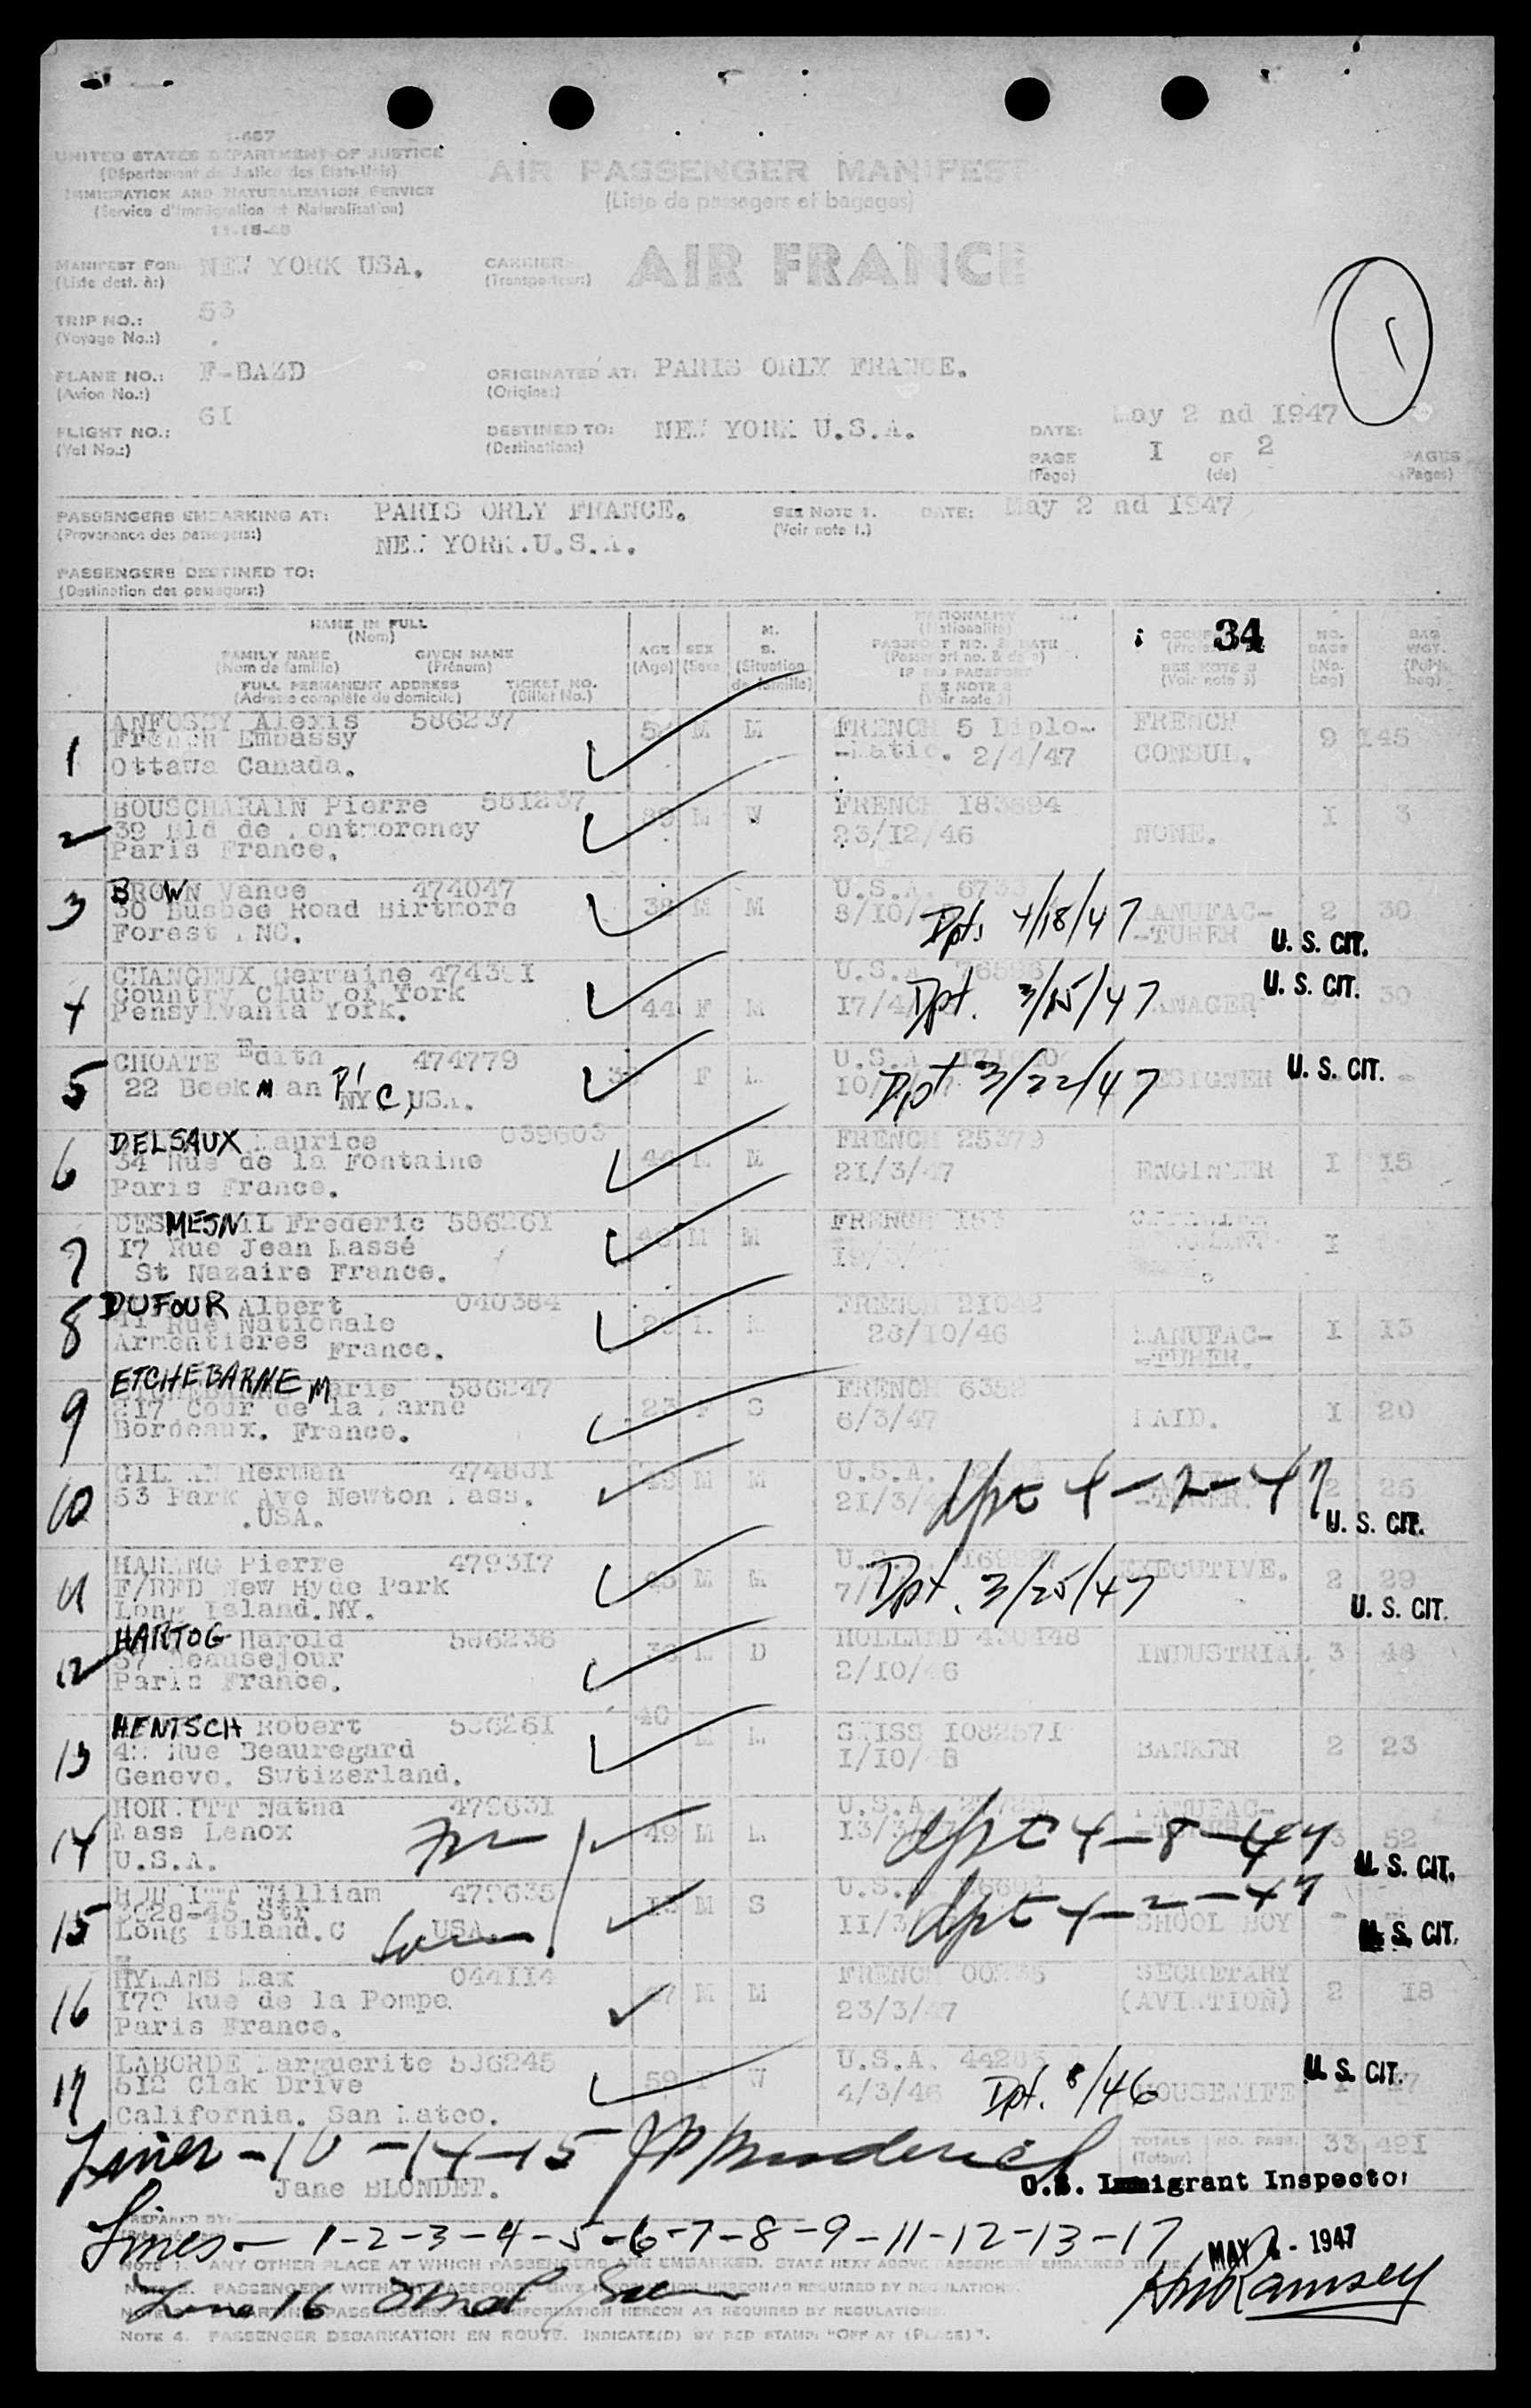 I-487
UNITED STATES DEPARTMENT OF JUSTICE
(Département de Justice des Etats-Unis)
IMMIGRATION AND NATURALIZATION SERVICE
(Service d'Immigration et Naturalisation)
11-15-45
AIR PASSENGER MANIFEST
(Liste de passagers et bagages)
MANIFEST FOR: NEW YORK USA.
(Liste dest. à:)
CARRIER
(Transporteur:)
AIR FRANCE
TRIP NO.: 53
(Voyage No.:)
1
PLANE NO.: F-BAZD
(Avion No.:)
ORIGINATED AT: PARIS ORLY FRANCE.
(Origine:)
FLIGHT NO.: 61
(Vol No.:)
DESTINED TO: NEW YORK U.S.A.
(Destination:)
DATE: May 2 nd 1947
PAGE I OF 2 PAGES
(Page) (de) (Pages)
PASSENGERS EMBARKING AT: PARIS ORLY FRANCE. SEE NOTE 1. DATE: May 2 nd 1947
(Provenance des passagers:) (Voir note 1.)
NEW YORK.U.S.A.
PASSENGERS DESTINED TO:
(Destination des passagers:)
NAME IN FULL
(Nom)
FAMILY NAME GIVEN NAME
(Nom de famille) (Prénom)
FULL PERMANENT ADDRESS TICKET NO.
(Adresse complète du domicile) (Billet No.)
AGE
(Age)
SEX
(Sexe)
M.
S.
(Situation
de famille)
NATIONALITY
(Nationalité)
PASSPORT NO. & DATE
(Passeport no. & date)
IF NO PASSPORT
SEE NOTE 2
(Voir note 2)
34
SEE NOTE 3
(Voir note 3)
NO.
BAGS
(No.
bag)
BAG
WGT.
(Poids
bag)
1 ANFOSSY Alexis 586237 M M FRENCH 5 Diplo- FRENCH 9 145
French Embassy -matic. 2/4/47 CONSUL.
Ottawa Canada.
2 BOUSCHARAIN Pierre 581237 M W FRENCH 183894 NONE. 1 3
39 Bld de Montmorency 23/12/46
Paris France.
3 BROWN Vance 474047 38 M M U.S.A. MANUFAC- 2 30
30 Busbee Road Birtmore 8/10/ Dpt. 4/18/47 -TURER U. S. CIT.
Forest .NC.
4 CHANGEUX Germaine 44 F M U.S.A. MANAGER 30
Country Club of York 17/4/ Dpt. 3/15/47 U. S. CIT.
Pensylvania York.
5 CHOATE Edith 474779 F U.S.A. DESIGNER - -
22 Beekman Pl NYC USA. 10/ Dpt 3/22/47 U. S. CIT.
6 DELSAUX Maurice 039603 44 M M FRENCH 25379 ENGINEER I 15
34 Rue de la Fontaine 21/3/47
Paris France.
7 DESMESNIL Frederic 586261 M M FRENCH I
17 Rue Jean Massé
St Nazaire France.
8 DUFOUR Albert 040384 FRENCH MANUFAC- I 13
11 Rue Nationale 28/10/46 -TURER.
Armentieres France.
9 ETCHEBARNE Marie 586247 23 F S FRENCH MAID. I 20
217 Cour de la Marne 6/3/47
Bordeaux. France.
10 GILMAN Herman 474831 49 M M U.S.A. 2 26
53 Park Ave Newton Mass. 21/3/4 dpt 4-2-47 -TURER. U. S. CIT.
.USA.
11 HARANG Pierre 479317 M M EXECUTIVE. 2 29
F/RFD New Hyde Park Dpt. 3/25/47 U. S. CIT.
Long Island.NY.
12 HARTOG Harold 586238 M D HOLLAND 430448 INDUSTRIAL 3 48
57 Beausejour 2/10/46
Paris France.
13 HENTSCH Robert 536261 40 M M SWISS 1082571 BANKER 2 23
Rue Beauregard 1/10/
Geneve. Swtizerland.
14 HORWITT Natha 479631 49 M U.S.A. MANUFAC- 3 52
Mass Lenox 13/3/ dpt 4-8-47 -TURER U. S. CIT.
U.S.A.
15 HORWITT William 479635 M S U.S.A. - -
Str 11/3/ dpt 4-2-47 SHOOL BOY U. S. CIT.
Long Island.C USA Son
16 HYMANS Max 044114 47 M M FRENCH SECRETARY 2 18
179 Rue de la Pompe 23/3/47 (AVIATION)
Paris France.
17 LABORDE Marguerite 536245 59 F W U.S.A. HOUSEWIFE U. S. CIT.
512 Clak Drive 4/3/46 Dpt. 8/46
California. San Mateo.
Lines - 10 - 14 - 15 JP Broderick
TOTALS NO. PASS. 33 491
(Totaux)
Jane BLONDET.
U.S. Immigrant Inspector
PREPARED BY:
Lines - 1-2-3-4-5-6-7-8-9-11-12-13-17
MAY 2 - 1947
NOTE 1. ANY OTHER PLACE AT WHICH PASSENGERS ARE EMBARKED. STATE NEXT ABOVE PASSENGERS EMBARKED THERE.
NOTE 2. PASSENGERS WITHOUT PASSPORT GIVE INFORMATION HEREON AS REQUIRED BY REGULATIONS.
Line 16
Ramsey
PASSENGERS INFORMATION HEREON AS REQUIRED BY REGULATIONS.
NOTE 4. PASSENGER DEBARKATION EN ROUTE. INDICATE(D) BY RED STAMP: "OFF AT (PLACE)".